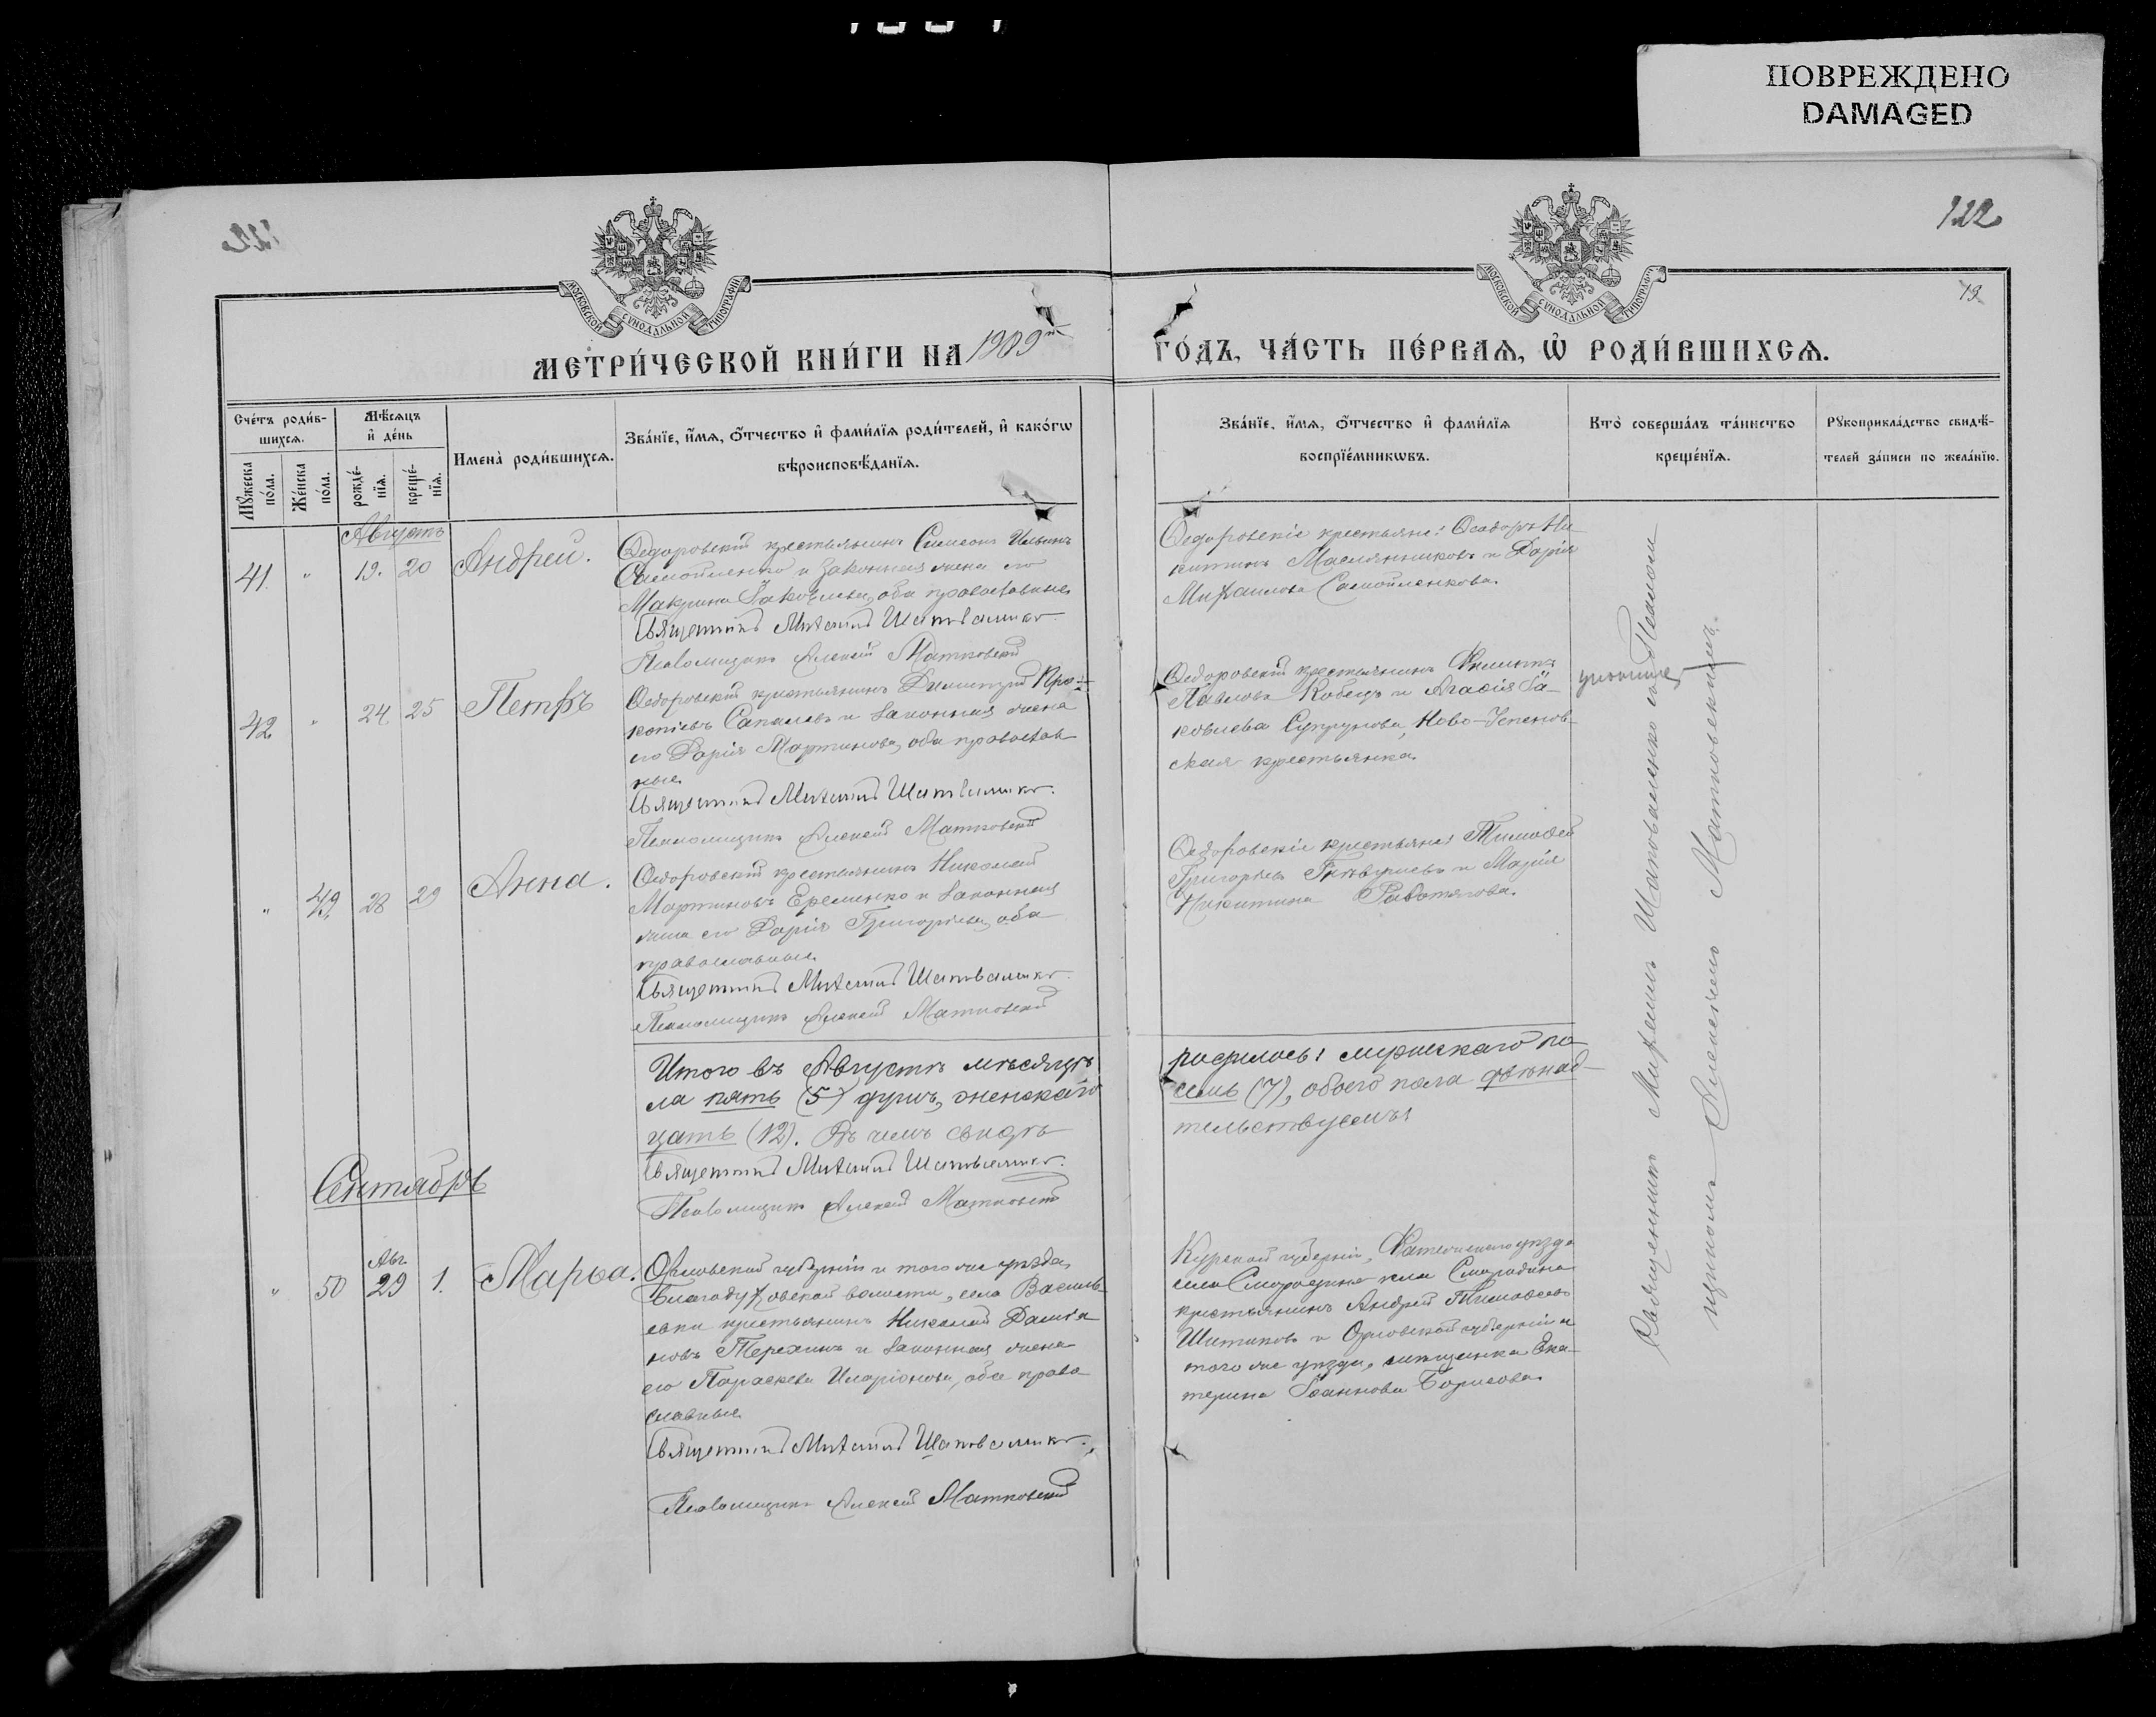 ПОВРЕЖДЕНО
DAMAGED
122
19.
МОСКОВСКОЙ СѴНОДАЛЬНОЙ ТИПОГРАФІИ
МОСКОВСКОЙ СѴНОДАЛЬНОЙ ТИПОГРАФІИ
МЕТРИ́ЧЕСКОЙ КНИ́ГИ НА 1909й ГО́ДЪ, ЧА́СТЬ ПЕ́РВАѦ, Ѡ҆ РОДИ́ВШИХСѦ.
Сче́тъ роди́в-
шихсѧ.
Мꙋ́жеска по́ла.
Же́нска по́ла.
Мѣ́сѧцъ
и҆ де́нь
рожде́-
нїѧ.
креще́-
нїѧ.
Имена̀ роди́вшихсѧ.
Зва́нїе, и҆́мѧ, ѻ҆́тчество и҆ фами́лїѧ роди́телей, и҆ како́гѡ
вѣроисповѣ́данїѧ.
Зва́нїе, и҆́мѧ, ѻ҆́тчество и҆ фами́лїѧ
воспрїе́мникѡвъ.
Кто̀ соверша́лъ та́инство
креще́нїѧ.
Рꙋкоприкла́дство свидѣ́-
телей за́писи по жела́нїю.
Августъ
41. " 19. 20 Андрей.
Ѳедоровскій крестьянинъ Симеонъ Ильинъ
Самойленко и законная жена его
Макрина Іаковлева, оба православные
Священникъ Михаилъ Шаповаленко.
Псаломщикъ Алексій Матковскій
Ѳедоровскіе крестьяне: Ѳеодоръ Ни
китинъ Маслянниковъ и Дарія
Михаилова Самойленкова.
42 " 24 25 Петръ
Ѳедоровскій крестьянинъ Димитрій Про-
копіевъ Сапалевъ и законная жена
его Дарія Мартинова, оба православ
ные
Священникъ Михаилъ Шаповаленко.
Псаломщикъ Алексій Матковскій
Ѳедоровскій крестьянинъ Филиппъ
Павловъ Кобецъ и Агаѳія Іа-
ковлева Супрунова, Ново-Успенов-
ская крестьянка.
" 49 28 29 Анна.
Ѳедоровскій крестьянинъ Николай
Мартиновъ Еременко и законная
жена его Дарія Григорьева, оба
православные
Священникъ Михаилъ Шаповаленко.
Псаломщикъ Алексій Матковскій
Ѳедоровскіе крестьяне: Тимоѳей
Григорьевъ и Марія
Никитина Работягова.
Итого въ Августѣ мѣсяцѣ родилось: мужескаго по
ла пять (5) душъ, женскаго семь (7), обоего пола двѣнад-
цать (12). Въ чемъ свидѣтельствуемъ:
Священникъ Михаилъ Шаповаленко.
Псаломщикъ Алексій Матковскій
Сентябрь
Авг.
" 50 29 1. Марѳа.
Орловской губерніи и того же уѣзда,
Благодуховской волости, села Василь
евки крестьянинъ Николай Даміа
новъ Терехинъ и законная жена
его Параскева Иларіонова, оба право
славные
Священникъ Михаилъ Шаповаленко.
Псаломщикъ Алексій Матковскій
Курской губерніи, Фатежскаго уѣзда
села Смородина
крестьянинъ Андрей Тимоѳеевъ
Шитиковъ и Орловской губерніи и
того же уѣзда, мѣщанка Ека-
терина Іоаннова Борисова.
Священникъ Михаилъ Шаповаленко съ Псалом
щикомъ Алексіемъ Матковскимъ.